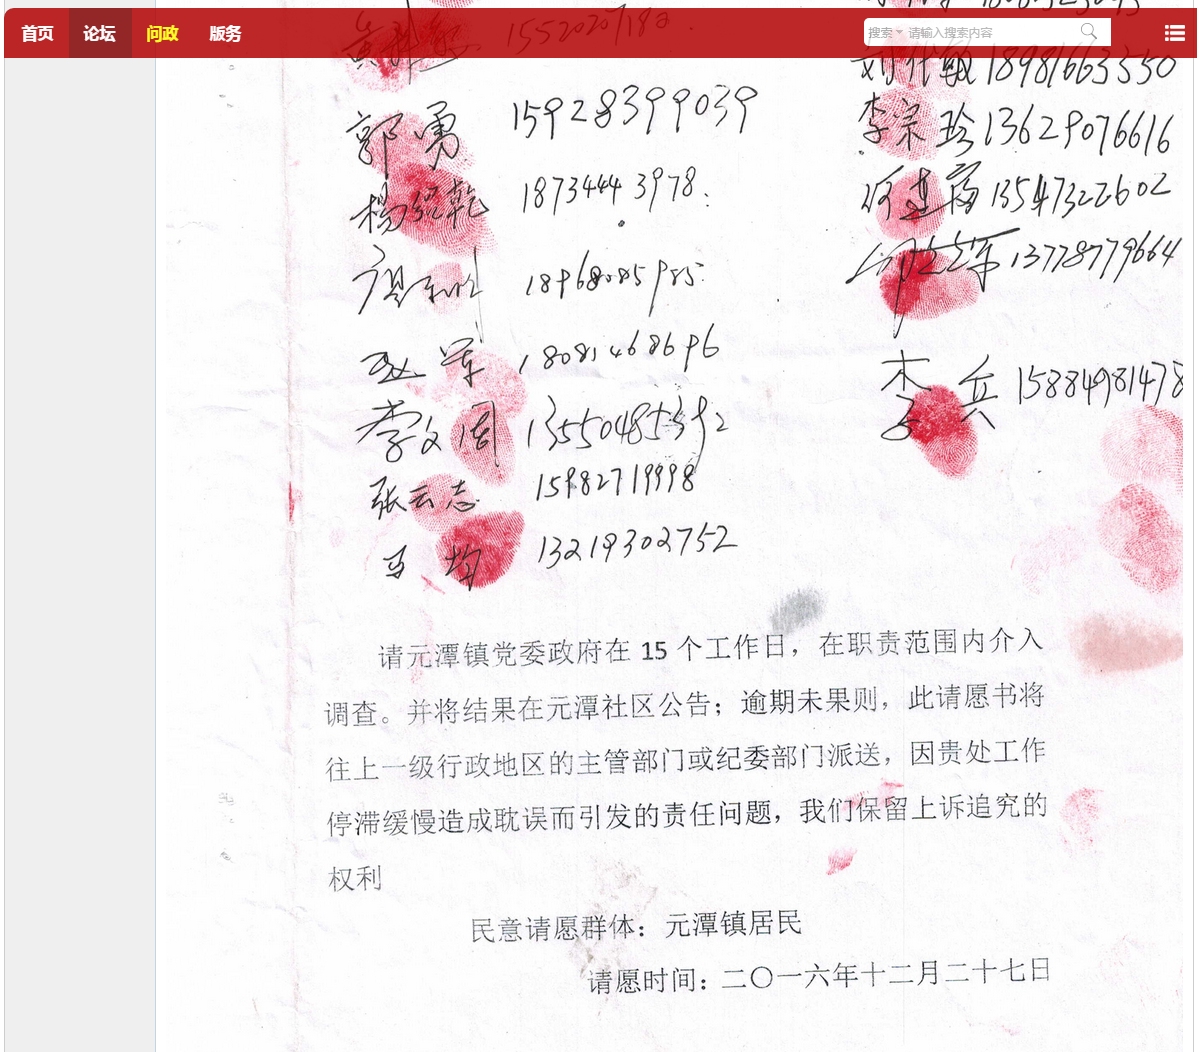 首页 论坛 问政 版服 搜索 请输入搜索内容
15520207182.
18981663550
郭勇 15928399039
李宗珍 13629076616
杨绍乾 18734443978.
何建蓉 13547322602
13778779664
18968085985.
赵军 18081468696
李兵 15884981478
李文周 13550485392
张云志 15982719998
马均 13219302752
请元潭镇党委政府在 15 个工作日，在职责范围内介入
调查。并将结果在元潭社区公告；逾期未果则，此请愿书将
往上一级行政地区的主管部门或纪委部门派送，因贵处工作
停滞缓慢造成耽误而引发的责任问题，我们保留上诉追究的
权利
民意请愿群体：元潭镇居民
请愿时间：二〇一六年十二月二十七日